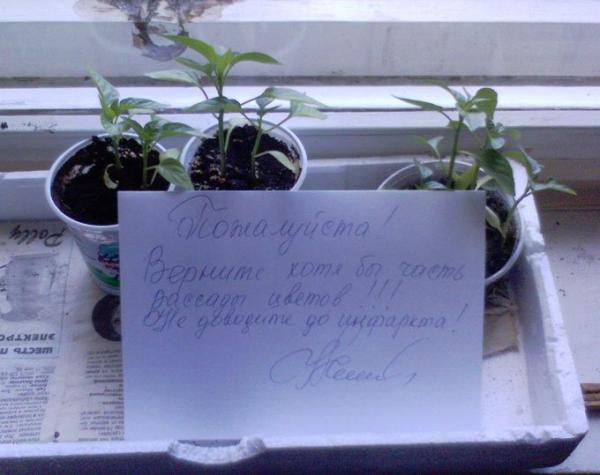 Пожалуйста!
Верните хотя бы часть
рассады цветов!!!
Не доводите до инфаркта!
Polly
ЭЛЕКТРО
ШЕСТЬ П